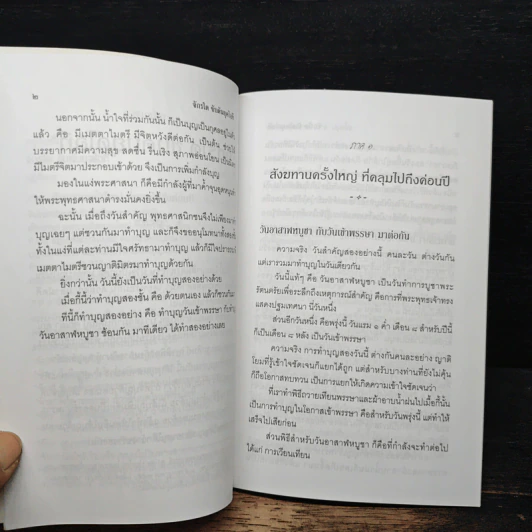 ๒
จักรใด ขับดันยุคไอที
นอกจากนั้น น้ำใจที่ร่วมกันนั้น ก็เป็นบุญเป็นกุศลอยู่ในตัว
แล้ว คือ มีเมตตาไมตรี มีจิตหวังดีต่อกัน เป็นต้น
บรรยากาศมีความสุข สดชื่น รื่นเริง สุภาพอ่อนโยน
มีไมตรีจิตมาประกอบเข้าด้วย จึงเป็นการเพิ่มกำลังบุญ
มองในแง่พระศาสนา ก็คือมีกำลังผู้ที่มาค้ำจุน
ให้พระพุทธศาสนาดำรงมั่นคงยิ่งขึ้น
ฉะนั้น เมื่อถึงวันสำคัญ พุทธศาสนิกชนจึงไม่เพียงมา
บุญเฉยๆ แต่ชวนกันมาทำบุญ และก็จึงขออนุโมทนา
ทั้งในแง่ที่แต่ละท่านมีใจศรัทธามาทำบุญ แล้วก็มีใจ
เมตตาไมตรีชวนญาติมิตรมาทำบุญด้วยกัน
ยิ่งกว่านั้น วันนี้ยังเป็นวันที่ทำบุญสองอย่างด้วย
เมื่อกี้นี้ว่าทำบุญสองชั้น คือ ด้วยตนเอง แล้วก็ชวนกัน
ก็ทำบุญสองอย่าง คือ ทำบุญวันเข้าพรรษา
วันอาสาฬหบูชา ซ้อนกัน มาทีเดียว ได้ทำสองอย่างเลย
ภาค ๑
สังฆทานครั้งใหญ่ ที่คลุมไปถึงค่อนปี
วันอาสาฬหบูชา กับวันเข้าพรรษา มาต่อกัน
ความจริง วันสำคัญสองอย่างนี้ คนละวัน ต่างวันกัน
แต่เรารวมมาทำบุญในวันเดียวกัน
วันนี้แท้ๆ คือ วันอาสาฬหบูชา เป็นวันทำการบูชาพระ
รัตนตรัยเพื่อระลึกถึงเหตุการณ์สำคัญ คือการที่พระพุทธเจ้าทรง
แสดงปฐมเทศนา นี่วันหนึ่ง
ส่วนอีกวันหนึ่ง คือพรุ่งนี้ วันแรม ๑ ค่ำ เดือน ๘ สำหรับปีนี้
ก็เป็นเดือน ๘ หลัง เป็นวันเข้าพรรษา
ความจริง การทำบุญสองวันนี้ ต่างกันคนละอย่าง ญาติ
โยมที่รู้เข้าใจชัดเจนก็แยกได้ถูก แต่สำหรับบางท่านที่ยังไม่คุ้น
ก็ถือโอกาสทบทวน เป็นการแยกให้เกิดความเข้าใจชัดเจนว่า
ที่เราทำพิธีถวายเทียนพรรษาและผ้าอาบน้ำฝนไปเมื่อกี้นั้น
เป็นการทำบุญในโอกาสเข้าพรรษา คือสำหรับวันพรุ่งนี้ แต่ทำให้
เสร็จไปเสียก่อน
ส่วนพิธีสำหรับวันอาสาฬหบูชา ก็คือที่กำลังจะทำต่อไป
ได้แก่ การเวียนเทียน